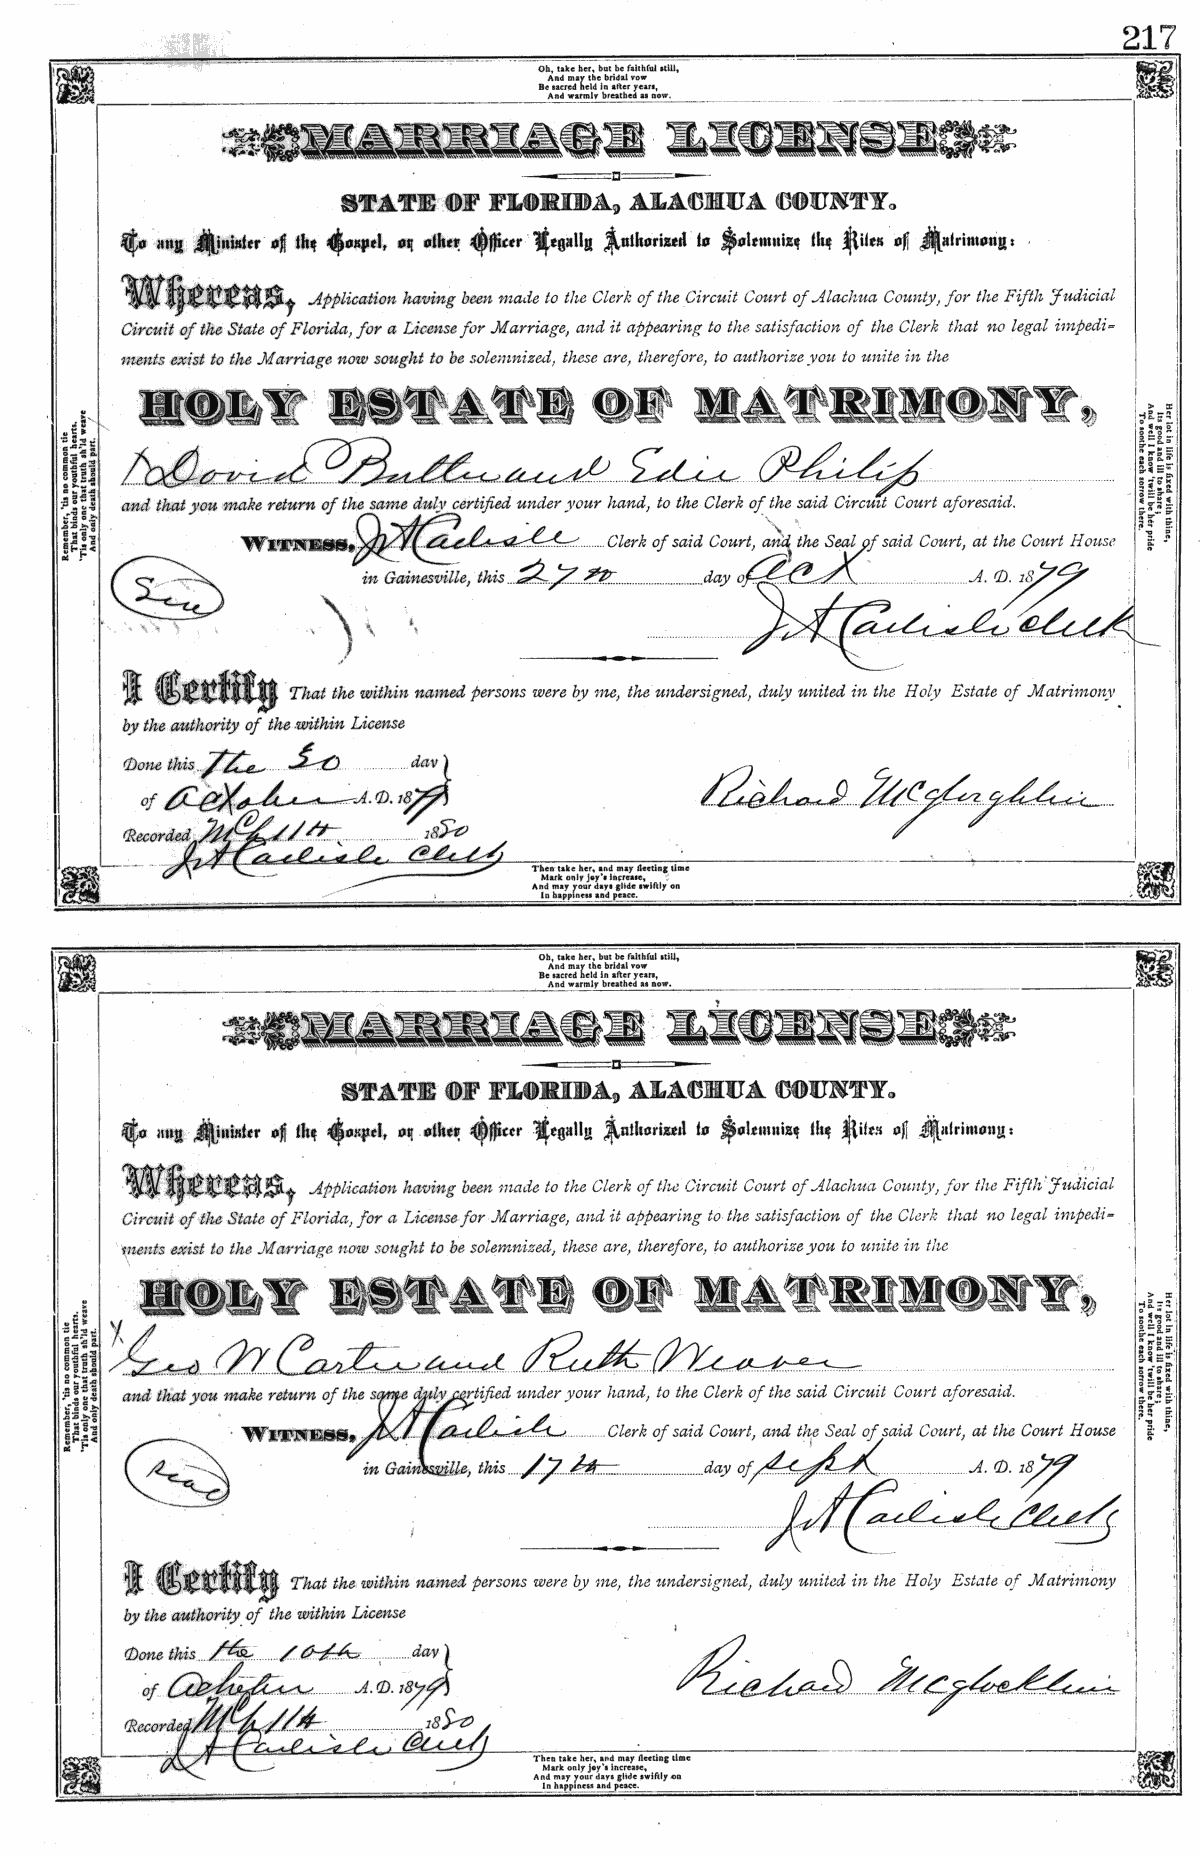 217
Oh, take her, but be faithful still,
And may the bridal vow
Be sacred held in after years,
And warmly breathed as now.
MARRIAGE LICENSE
STATE OF FLORIDA, ALACHUA COUNTY.
To any Minister of the Gospel, or other Officer Legally Authorized to Solemnize the Rites of Matrimony:
Whereas, Application having been made to the Clerk of the Circuit Court of Alachua County, for the Fifth Judicial
Circuit of the State of Florida, for a License for Marriage, and it appearing to the satisfaction of the Clerk that no legal impedi=
ments exist to the Marriage now sought to be solemnized, these are, therefore, to authorize you to unite in the
HOLY ESTATE OF MATRIMONY,
David Butler and Edie Philip
and that you make return of the same duly certified under your hand, to the Clerk of the said Circuit Court aforesaid.
WITNESS, J A Carlisle Clerk of said Court, and the Seal of said Court, at the Court House
in Gainesville, this 27th day of Oct A. D. 1879
Seal
J A Carlisle Clerk
I Certify That the within named persons were by me, the undersigned, duly united in the Holy Estate of Matrimony
by the authority of the within License
Done this The 30 day
of October A.D. 1879
Richard McGloghlin
Recorded Mch 11th 1880
J A Carlisle Clerk
Then take her, and may fleeting time
Mark only joy's increase,
And may your days glide swiftly on
In happiness and peace.
Remember, 'tis no common tie
That binds our youthful hearts.
'Tis only one that truth sh'ld weave
And only death should part.
Her lot in life is fixed with thine,
Its good and ill to share;
And well I know 'twill be her pride
To soothe each sorrow there.
Oh, take her, but be faithful still,
And may the bridal vow
Be sacred held in after years,
And warmly breathed as now.
MARRIAGE LICENSE
STATE OF FLORIDA, ALACHUA COUNTY.
To any Minister of the Gospel, or other Officer Legally Authorized to Solemnize the Rites of Matrimony:
Whereas, Application having been made to the Clerk of the Circuit Court of Alachua County, for the Fifth Judicial
Circuit of the State of Florida, for a License for Marriage, and it appearing to the satisfaction of the Clerk that no legal impedi=
ments exist to the Marriage now sought to be solemnized, these are, therefore, to authorize you to unite in the
HOLY ESTATE OF MATRIMONY,
X Geo W Carter and Ruth Weaver
and that you make return of the same duly certified under your hand, to the Clerk of the said Circuit Court aforesaid.
WITNESS, J A Carlisle Clerk of said Court, and the Seal of said Court, at the Court House
in Gainesville, this 17th day of Sept A. D. 1879
Seal
J A Carlisle Clerk
I Certify That the within named persons were by me, the undersigned, duly united in the Holy Estate of Matrimony
by the authority of the within License
Done this the 10th day
of October A.D. 1879
Richard McGlocklin
Recorded Mch 11th 1880
J A Carlisle Clerk
Then take her, and may fleeting time
Mark only joy's increase,
And may your days glide swiftly on
In happiness and peace.
Remember, 'tis no common tie
That binds our youthful hearts.
'Tis only one that truth sh'ld weave
And only death should part.
Her lot in life is fixed with thine,
Its good and ill to share;
And well I know 'twill be her pride
To soothe each sorrow there.